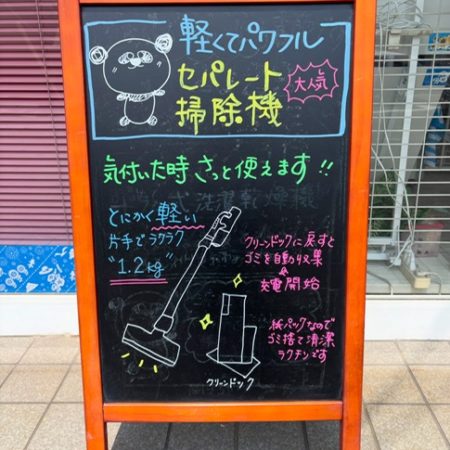 軽くてパワフル
セパレート
掃除機
大人気
気付いた時 さっと使えます!!
とにかく軽い
片手でラクラク
"1.2kg"
クリーンドックに戻すと
ゴミを自動収集
&
充電開始
紙パックなので
ゴミ捨て清潔
ラクチンです
クリーンドック